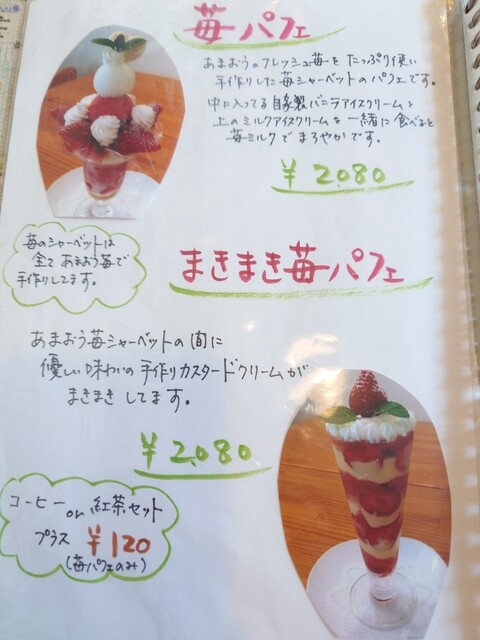 苺パフェ
あまおうのフレッシュ苺を たっぷり使い
手作りした苺シャーベットのパフェです。
中に入ってる自家製バニラアイスクリームと
上のミルクアイスクリームを一緒に食べると
苺ミルクで まろやかです。
¥2,080
苺のシャーベットは
全て あまおう苺で
手作りしてます。
まきまき苺パフェ
あまおう苺シャーベットの間に
優しい味わいの手作りカスタードクリームが
まきまき してます。
¥2,080
コーヒー or 紅茶セット
プラス ¥120
(苺パフェのみ)